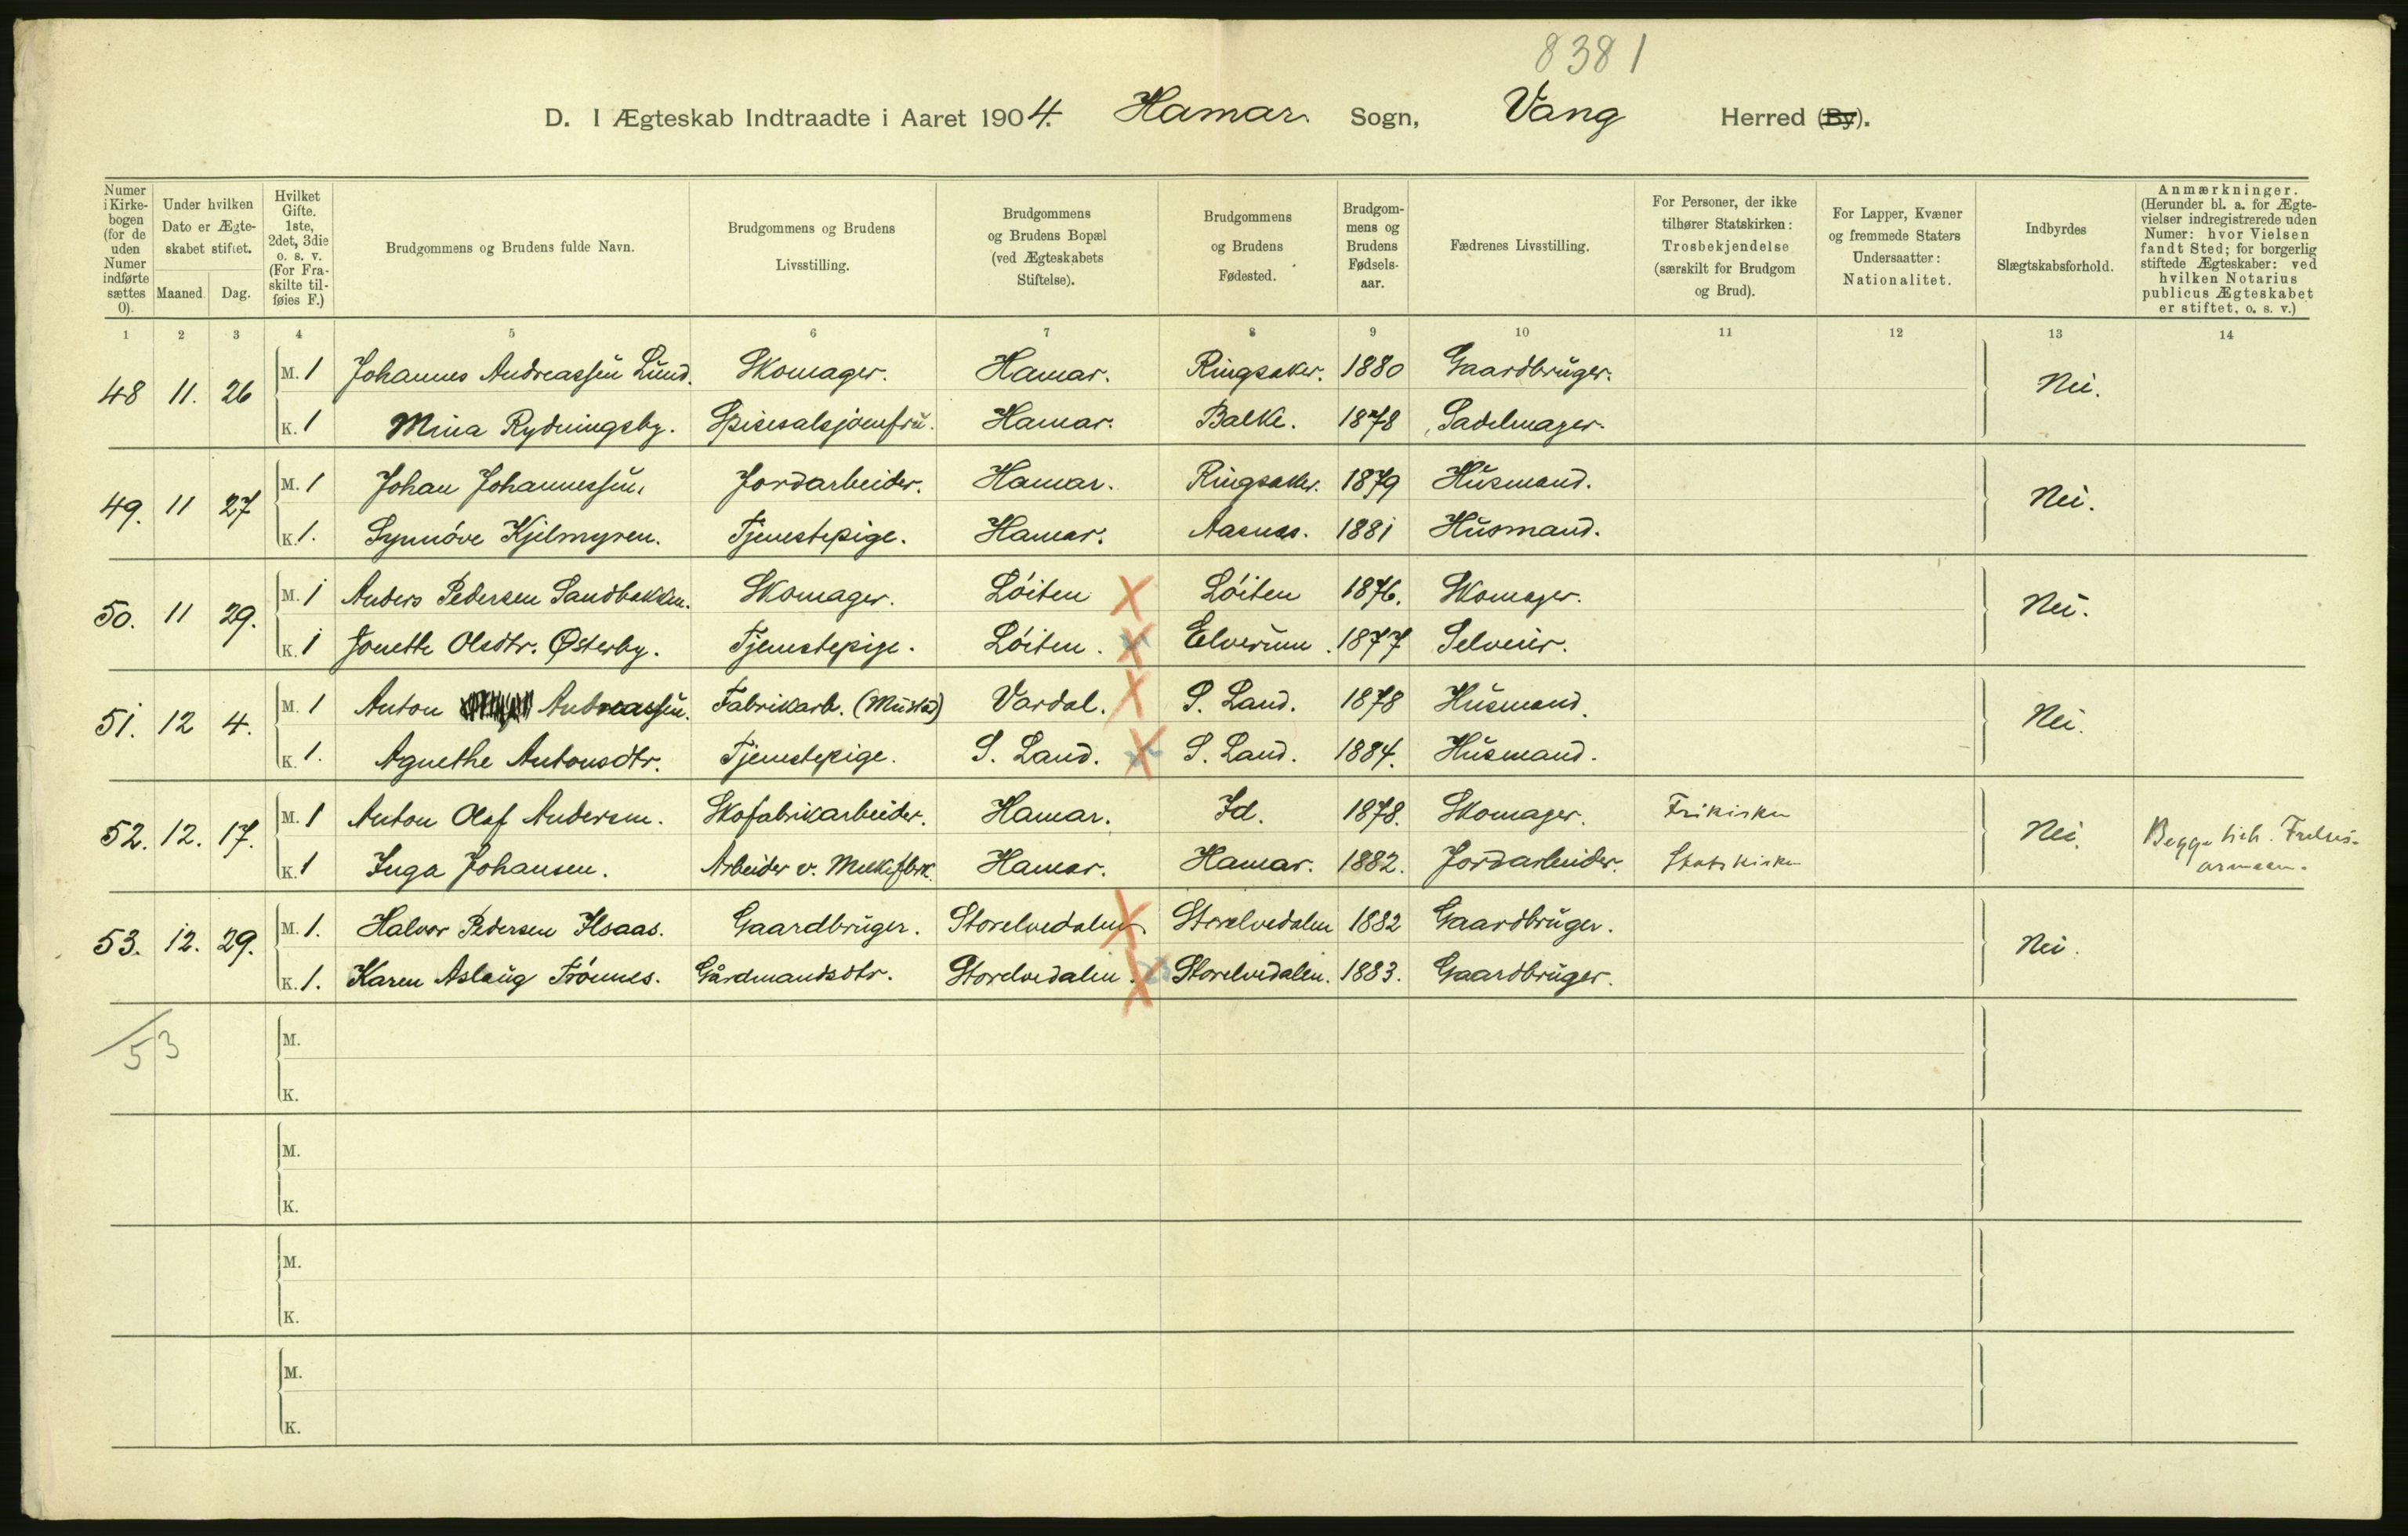 8381
D. I Ægteskab Indtraadte i Aaret 1904. Hamar. Sogn, Vang Herred (By).
Numer i Kirkebogen (for de uden Numer indførte sættes 0).
Under hvilken Dato er Ægteskabet stiftet.
Maaned. Dag.
Hvilket Gifte. 1ste, 2det, 3die o. s. v. (For Fraskilte tilføies F.)
Brudgommens og Brudens fulde Navn.
Brudgommens og Brudens Livsstilling.
Brudgommens og Brudens Bopæl (ved Ægteskabets Stiftelse).
Brudgommens og Brudens Fødested.
Brudgommens og Brudens Fødselsaar.
Fædrenes Livsstilling.
For Personer, der ikke tilhører Statskirken: Trosbekjendelse (særskilt for Brudgom og Brud).
For Lapper, Kvæner og fremmede Staters Undersaatter: Nationalitet.
Indbyrdes Slægtskabsforhold.
Anmærkninger. (Herunder bl. a. for Ægtevielser indregistrerede uden Numer: hvor Vielsen fandt Sted; for borgerlig stiftede Ægteskaber: ved hvilken Notarius publicus Ægteskabet er stiftet, o. s. v.)
1 2 3 4 5 6 7 8 9 10 11 12 13 14
48 11. 26 M. 1 Johannes Andreassen Lund. Skomager. Hamar. Ringsaker. 1880 Gaardbruger. Nei.
K. 1 Mina Rydningsby. Spisesalsjomfru. Hamar. Balke. 1878 Sadelmager.
49. 11 27 M. 1 Johan Johannessen. Jordarbeider. Hamar. Ringsaker. 1879 Husmand. Nei.
K. 1. Synnøve Kjelmyren. Tjenestepige. Hamar. Aasnes. 1881 Husmand.
50. 11 29. M. 1 Anders Pedersen Sandbakken. Skomager. Løiten Løiten 1876. Skomager. Nei.
K. 1 Jonette Olsdtr. Østerby. Tjenestepige. Løiten. Elverum. 1877 Selveier.
51. 12 4. M. 1 Anton Andreassen. Fabrikarb. (Mustad) Vardal. S. Land. 1878 Husmand. Nei.
K. 1. Agnethe Antonsdtr. Tjenestepige. S. Land. S. Land. 1884. Husmand.
52. 12. 17. M. 1 Anton Olaf Andersen. Skofabrikarbeider. Hamar. Id. 1878. Skomager. Frikirken Nei. Begge tilh. Frelsesarmeen.
K. 1 Inga Johansen. Arbeider v. Melkefbrk. Hamar. Hamar. 1882. Jordarbeider. Statskirken
53. 12. 29. M. 1. Halvor Pedersen Ilsaas. Gaardbruger. Storelvedalen. Storelvedalen 1882 Gaardbruger. Nei.
K. 1. Karen Aslaug Trønnes. Gårdmandsdtr. Storelvedalen. Storelvedalen. 1883. Gaardbruger.
53 M.
K.
M.
K.
M.
K.
M.
K.